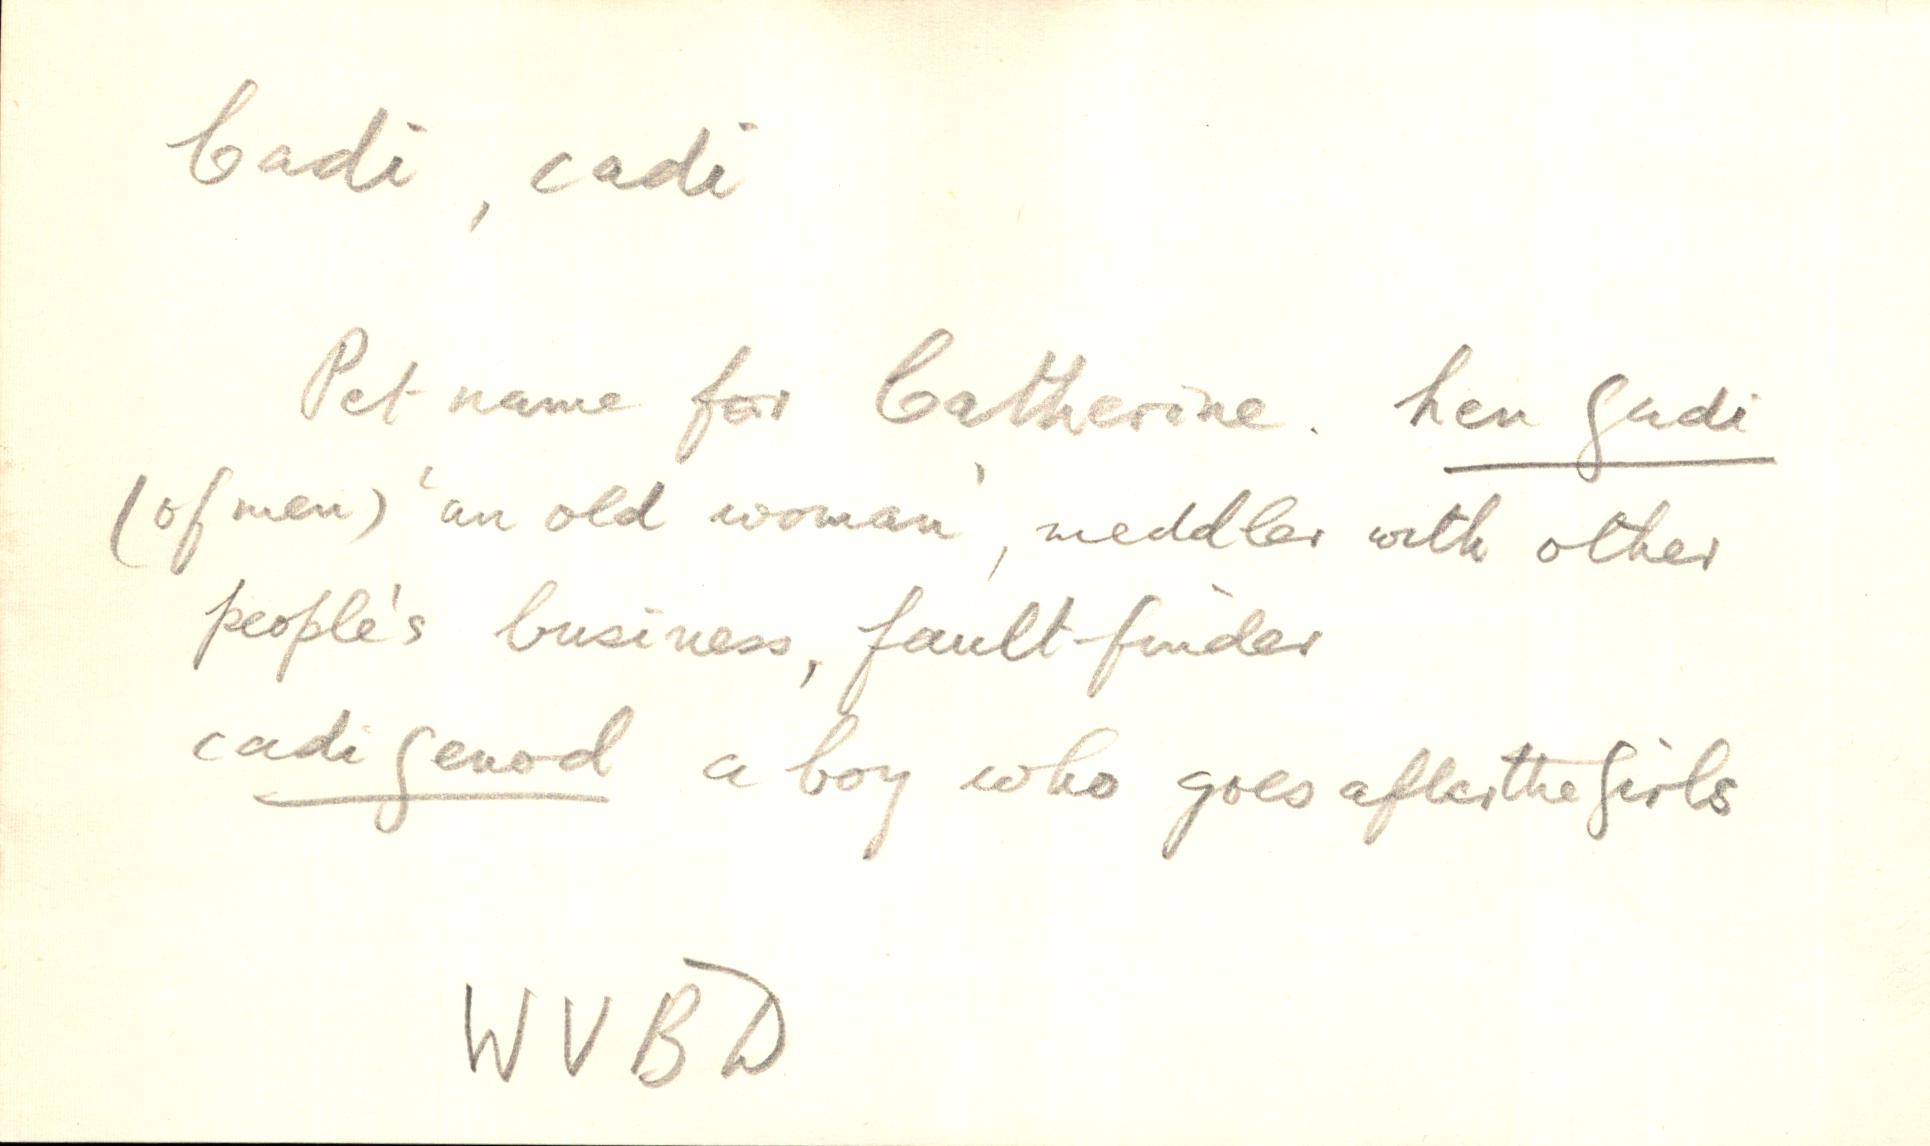 Cadi, cadi
Pet name for Catherine. hen gadi
(of men) 'an old woman', meddler with other
people's business, fault-finder
cadi genod a boy who goes after the girls
WVBD